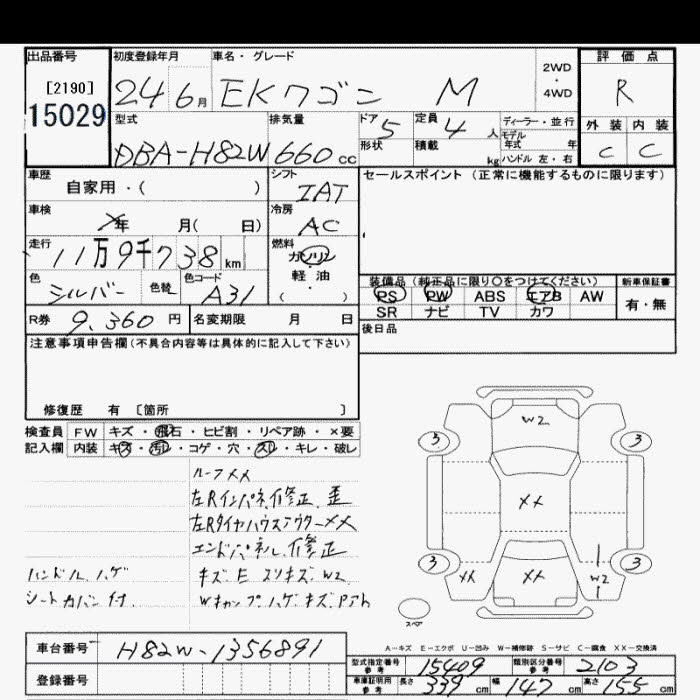 出品番号 初度登録年月 車名・グレード 2WD・4WD 評価点
[2190] 15029 24 6月 EKワゴン M R
型式 排気量 ドア 5 定員 4人 ディーラー・並行 外装 内装
DBA-H82W 660cc 形状 積載 kg モデル年式 年 ハンドル 左・右 C C
車歴 自家用・( ) シフト IAT セールスポイント (正常に機能するものに限ります)
車検 年 月( 日) 冷房 AC
走行 11万9千738km 燃料 ガソリン・軽油・( )
色 シルバー 色替 色コード A31
装備品 (純正品に限り○をつけてください) 新車保証書
PS PW ABS エアB AW 有・無
SR ナビ TV カワ
R券 9,360円 名変期限 月 日 後日品
注意事項申告欄(不具合内容等は具体的に記入して下さい)
修復歴 有 [箇所 ]
検査員 FW キズ・飛石・ヒビ割・リペア跡・×要
記入欄 内装 キズ・汚れ・コゲ・穴・スレ・キレ・破レ
ルーフXX
左Rインパネ修正、歪
左RタイヤハウスアウターXX
エンドパネル修正
ハンドル ハゲ キズ E スリキズ W2
シートカバー付
W2
XX
XX XX W2
3 3
3 3
スペア
A-キズ E-エクボ U-凹み W-補修跡 S-サビ C-腐食 XX-交換済
車台番号 H82W-1356891
型式指定番号 参考 15409 類別区分番号 参考 2103
登録番号 車庫証明用 参考 長さ 339cm 幅 147cm 高さ 155cm